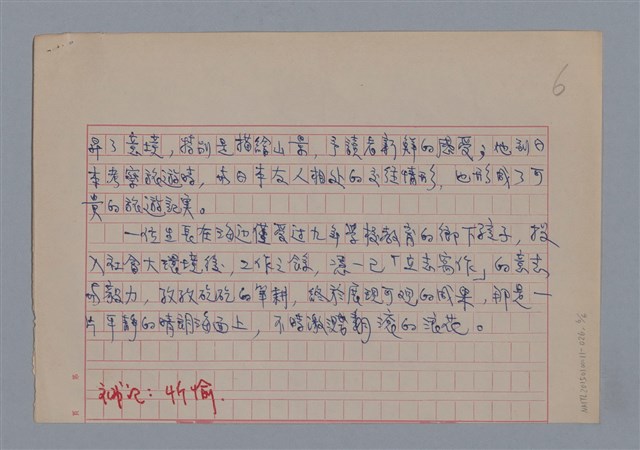 6
昇了意境，特別是描繪山景，予讀者新鮮的感受；他到日
本考察旅遊時，與日本友人相处的交往情形，也形成了可
貴的旅遊記実。
一位生長在海边僅受过九年學校教育的鄉下孩子，投
入社會大環境後，工作之餘，憑一己「立志寫作」的意志
與毅力，孜孜矻矻的筆耕，終於展現可观的成果，那是一
片平靜的晴朗海面上，不時激濺翻滾的浪花。